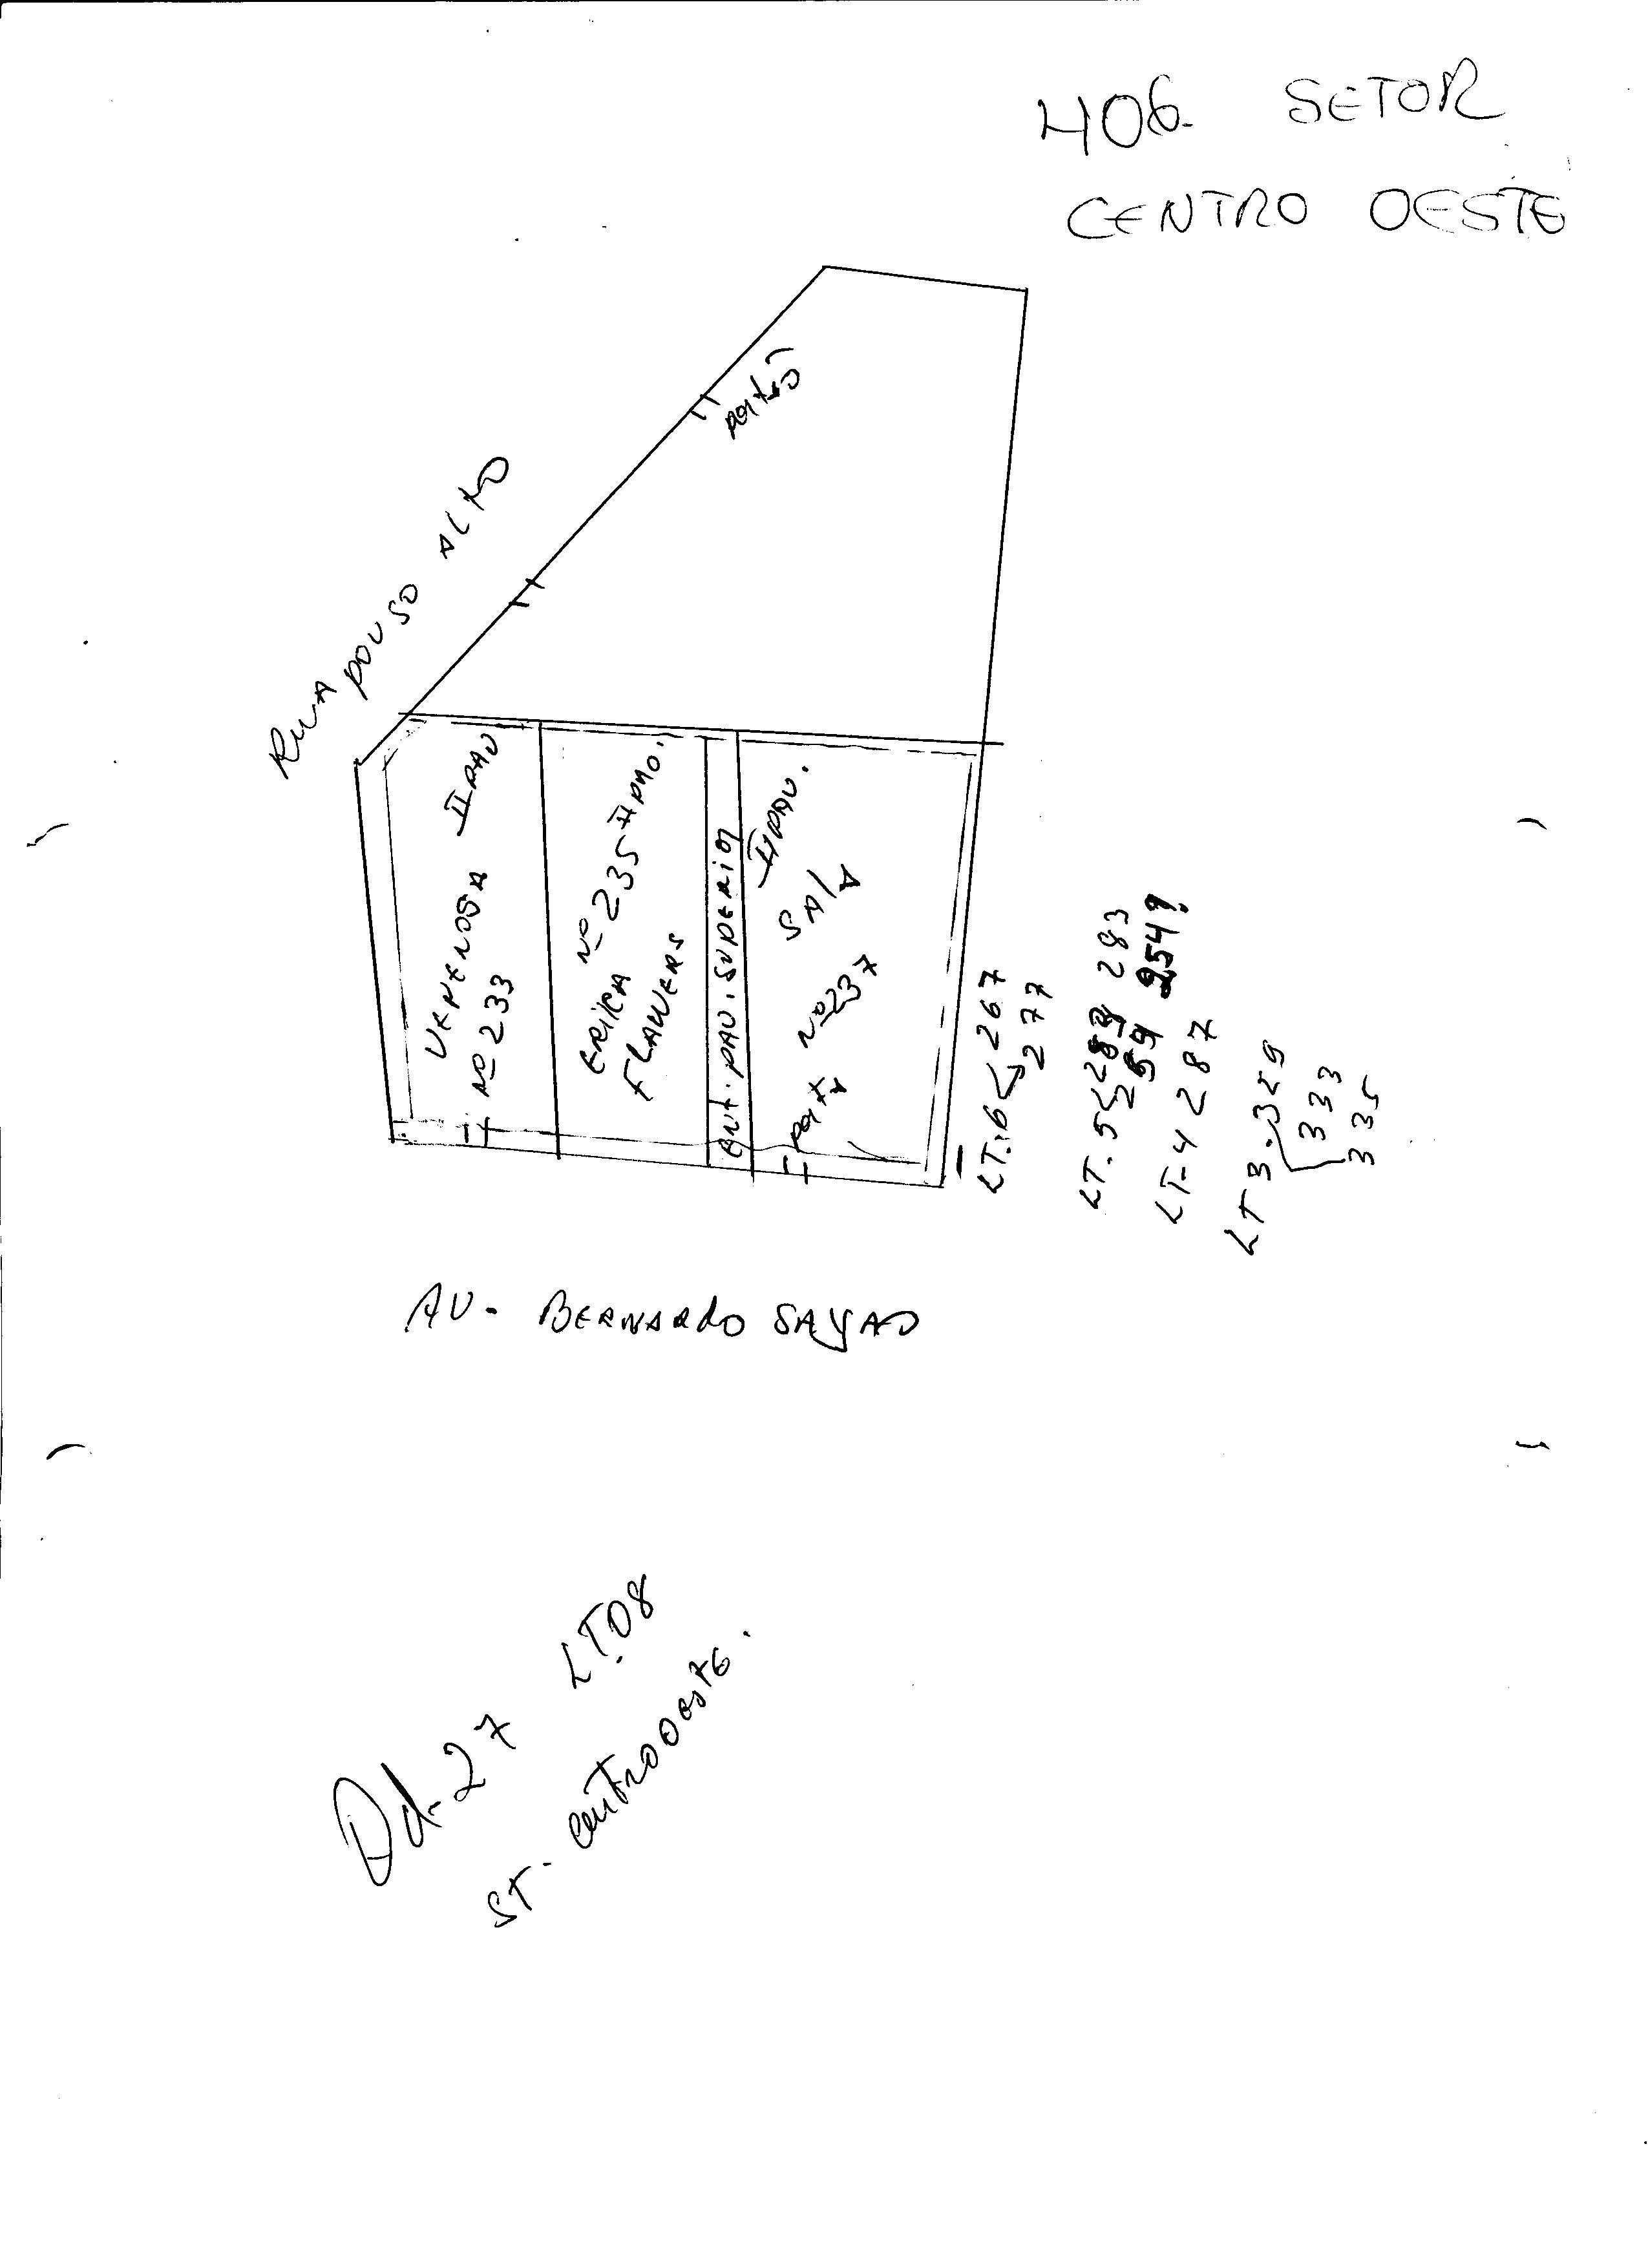 406 SETOR
CENTRO OESTE
RUA POUSO ALTO
II PAV
Nº 235 II PAV.
II PAV.
SALA
Nº 233
ERIKA
FLAWERS
ENT. PAV. SUPERIOR
Nº 237
LT. 6 267
277
LT. 5 283 283
LT-4 287
LT 3. 329
333
335
AV- BERNARDO SAYAO
Qd-27 LT.08
ST- Centro Oeste.